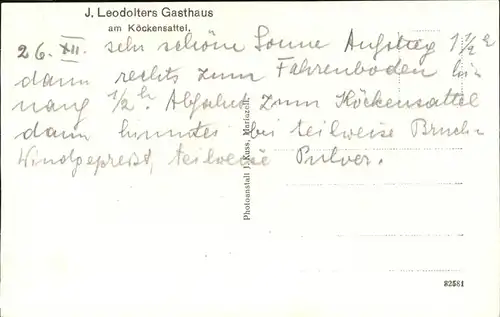 J. Leodolters Gasthaus
am Köckensattel.
26. XII. sehr schöne Sonne Aufstieg 1 1/2 h
dann rechts zum Fahrenboden hi-
nang 1/2 h. Abfahrt zum Köckensattel
dann hinunter bei teilweise Bruch-
Windgepreßt, teilweise Pulver.
Photoanstalt J. Kuss, Mariazell.
82581